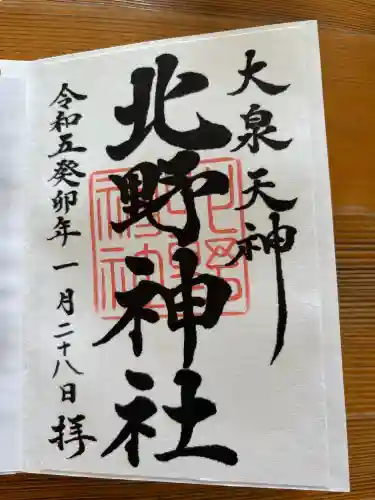 大泉天神
北野神社
令和五癸卯年一月二十八日拝
北野神社